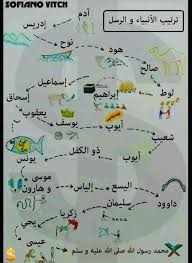 SOFIANO VITCH
ترتيب الأنبياء و الرسل
آدم
إدريس
نوح
هود
صالح
لوط
إبراهيم
إسماعيل
إسحاق
يعقوب
يوسف
أيوب
أيوب
ذو الكفل
يونس
موسى
و هارون
إلياس
اليسع
داوود
سليمان
زكريا
يحي
عيسى
محمد رسول الله صلى الله عليه و سلم